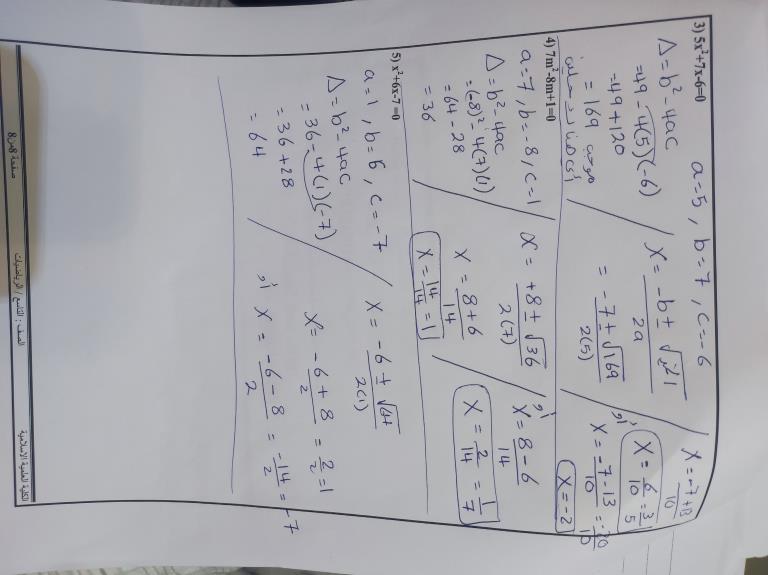 3) 5x²+7x-6=0
a=5 , b=7 , c=-6
Δ= b² - 4ac
=49 - 4(5)(-6)
=49+120
= 169 موجب
أي هناك حلين
X = -b ± √المميز / 2a
= -7 ± √169 / 2(5)
X = -7+13 / 10
X = 6/10 = 3/5
أو
X = -7-13 / 10 = -20/10
X = -2
4) 7m²-8m+1=0
a=7 , b=-8 , c=1
Δ= b² - 4ac
=(-8)² - 4(7)(1)
= 64 - 28
= 36
X = +8 ± √36 / 2(7)
X = 8+6 / 14
X = 14/14 = 1
أو
X = 8-6 / 14
X = 2/14 = 1/7
5) x²+6x-7=0
a=1 , b=6 , c=-7
Δ= b² - 4ac
= 36 - 4(1)(-7)
= 36+28
= 64
X = -6 ± √64 / 2(1)
X = -6+8 / 2 = 2/2 = 1
أو X = -6-8 / 2 = -14/2 = -7
الكلية العلمية الاسلامية
الصف : التاسع / الرياضيات
صفحة 8من8